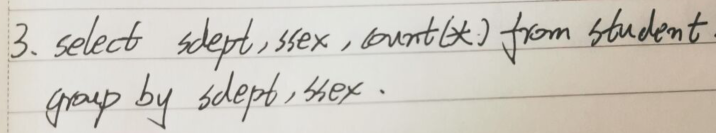 3. select sdept, ssex, count(*) from student.
group by sdept, ssex.